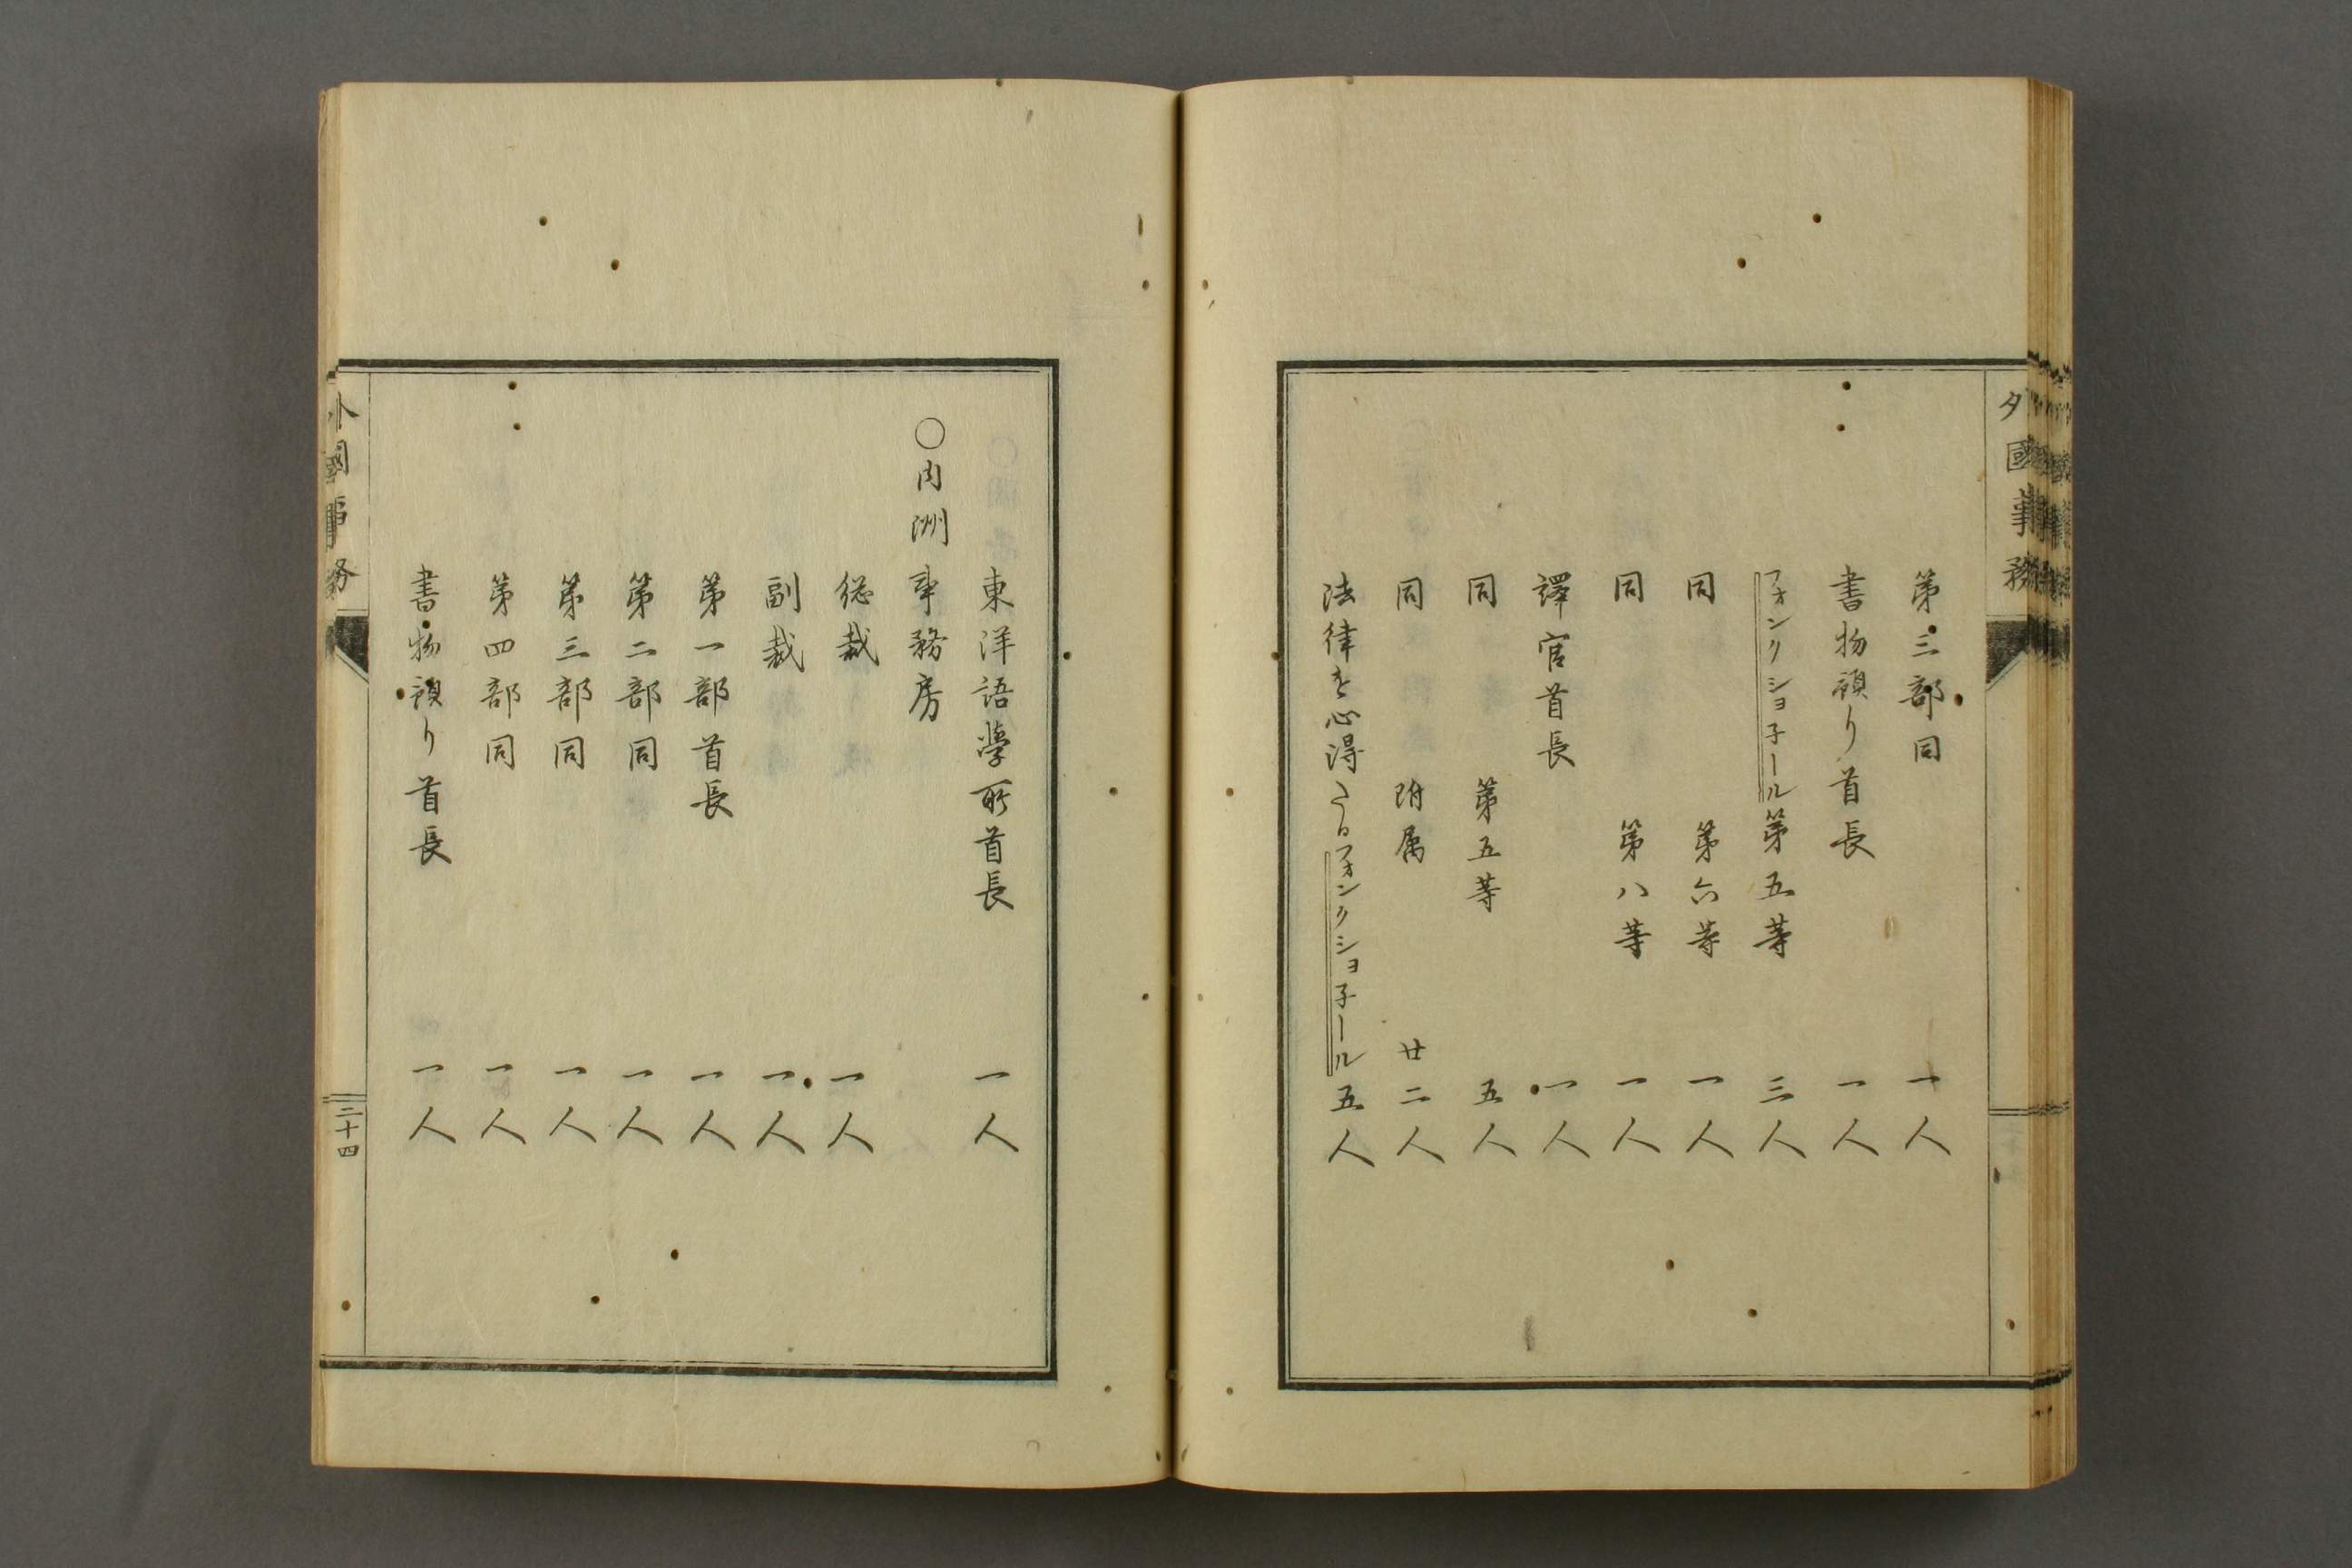 外國事務
第三部同 一人
書物預り首長 一人
フオンクショ子ール第五等 三人
同 第六等 一人
同 第八等 一人
譯官首長 一人
同 第五等 五人
同 附属 廿二人
法律を心得たるフオンクショ子ール 五人
東洋語學所首長 一人
〇内洲事務房
総裁 一人
副裁 一人
第一部首長 一人
第二部同 一人
第三部同 一人
第四部同 一人
書物預り首長 一人
外國事務
二十四